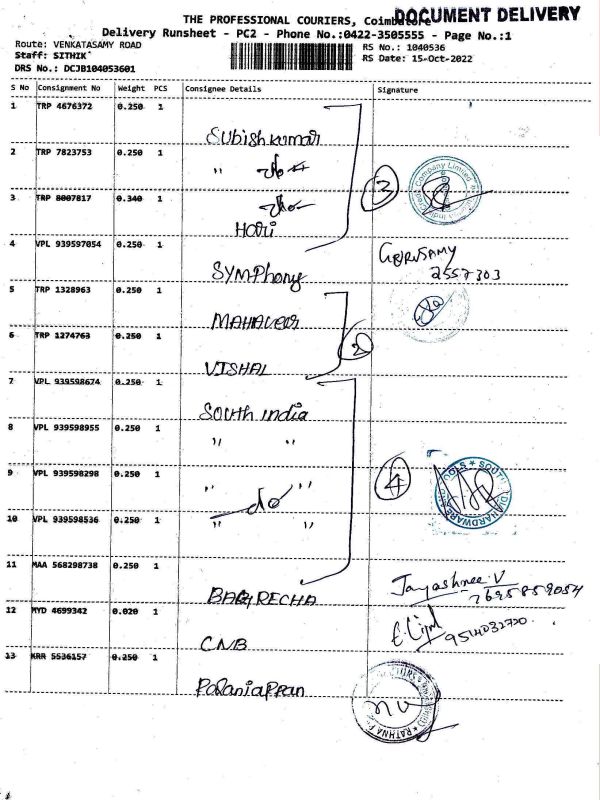 DOCUMENT DELIVERY
THE PROFESSIONAL COURIERS, Coimbatore
Delivery Runsheet - PC2 - Phone No.:0422-3505555 - Page No.:1
Route: VENKATASAMY ROAD
RS No.: 1040536
Staff: SITHIK
RS Date: 15-Oct-2022
DRS No.: DCJB104053601
S No Consignment No Weight PCS Consignee Details Signature
1 TRP 4676372 0.250 1
Subish kumar
2 TRP 7823753 0.250 1
" do
3 TRP 8007817 0.340 1
do
3
Hari
4 VPL 939597054 0.250 1
GURUSAMY
SYMPhony
2557303
5 TRP 1328963 0.250 1
MAHAVEER
6 TRP 1274763 0.250 1
2
VISHAL
7 VPL 939598674 0.250 1
South india
8 VPL 939598955 0.250 1
" "
9 VPL 939598298 0.250 1
" "
4
do
10 VPL 939598536 0.250 1
" "
11 MAA 568298738 0.250 1
Jayashree.V
BAGRECHA
7695859054
12 MYD 4699342 0.020 1
CNB
9514032720
13 KRR 5536157 0.250 1
Palaniappan